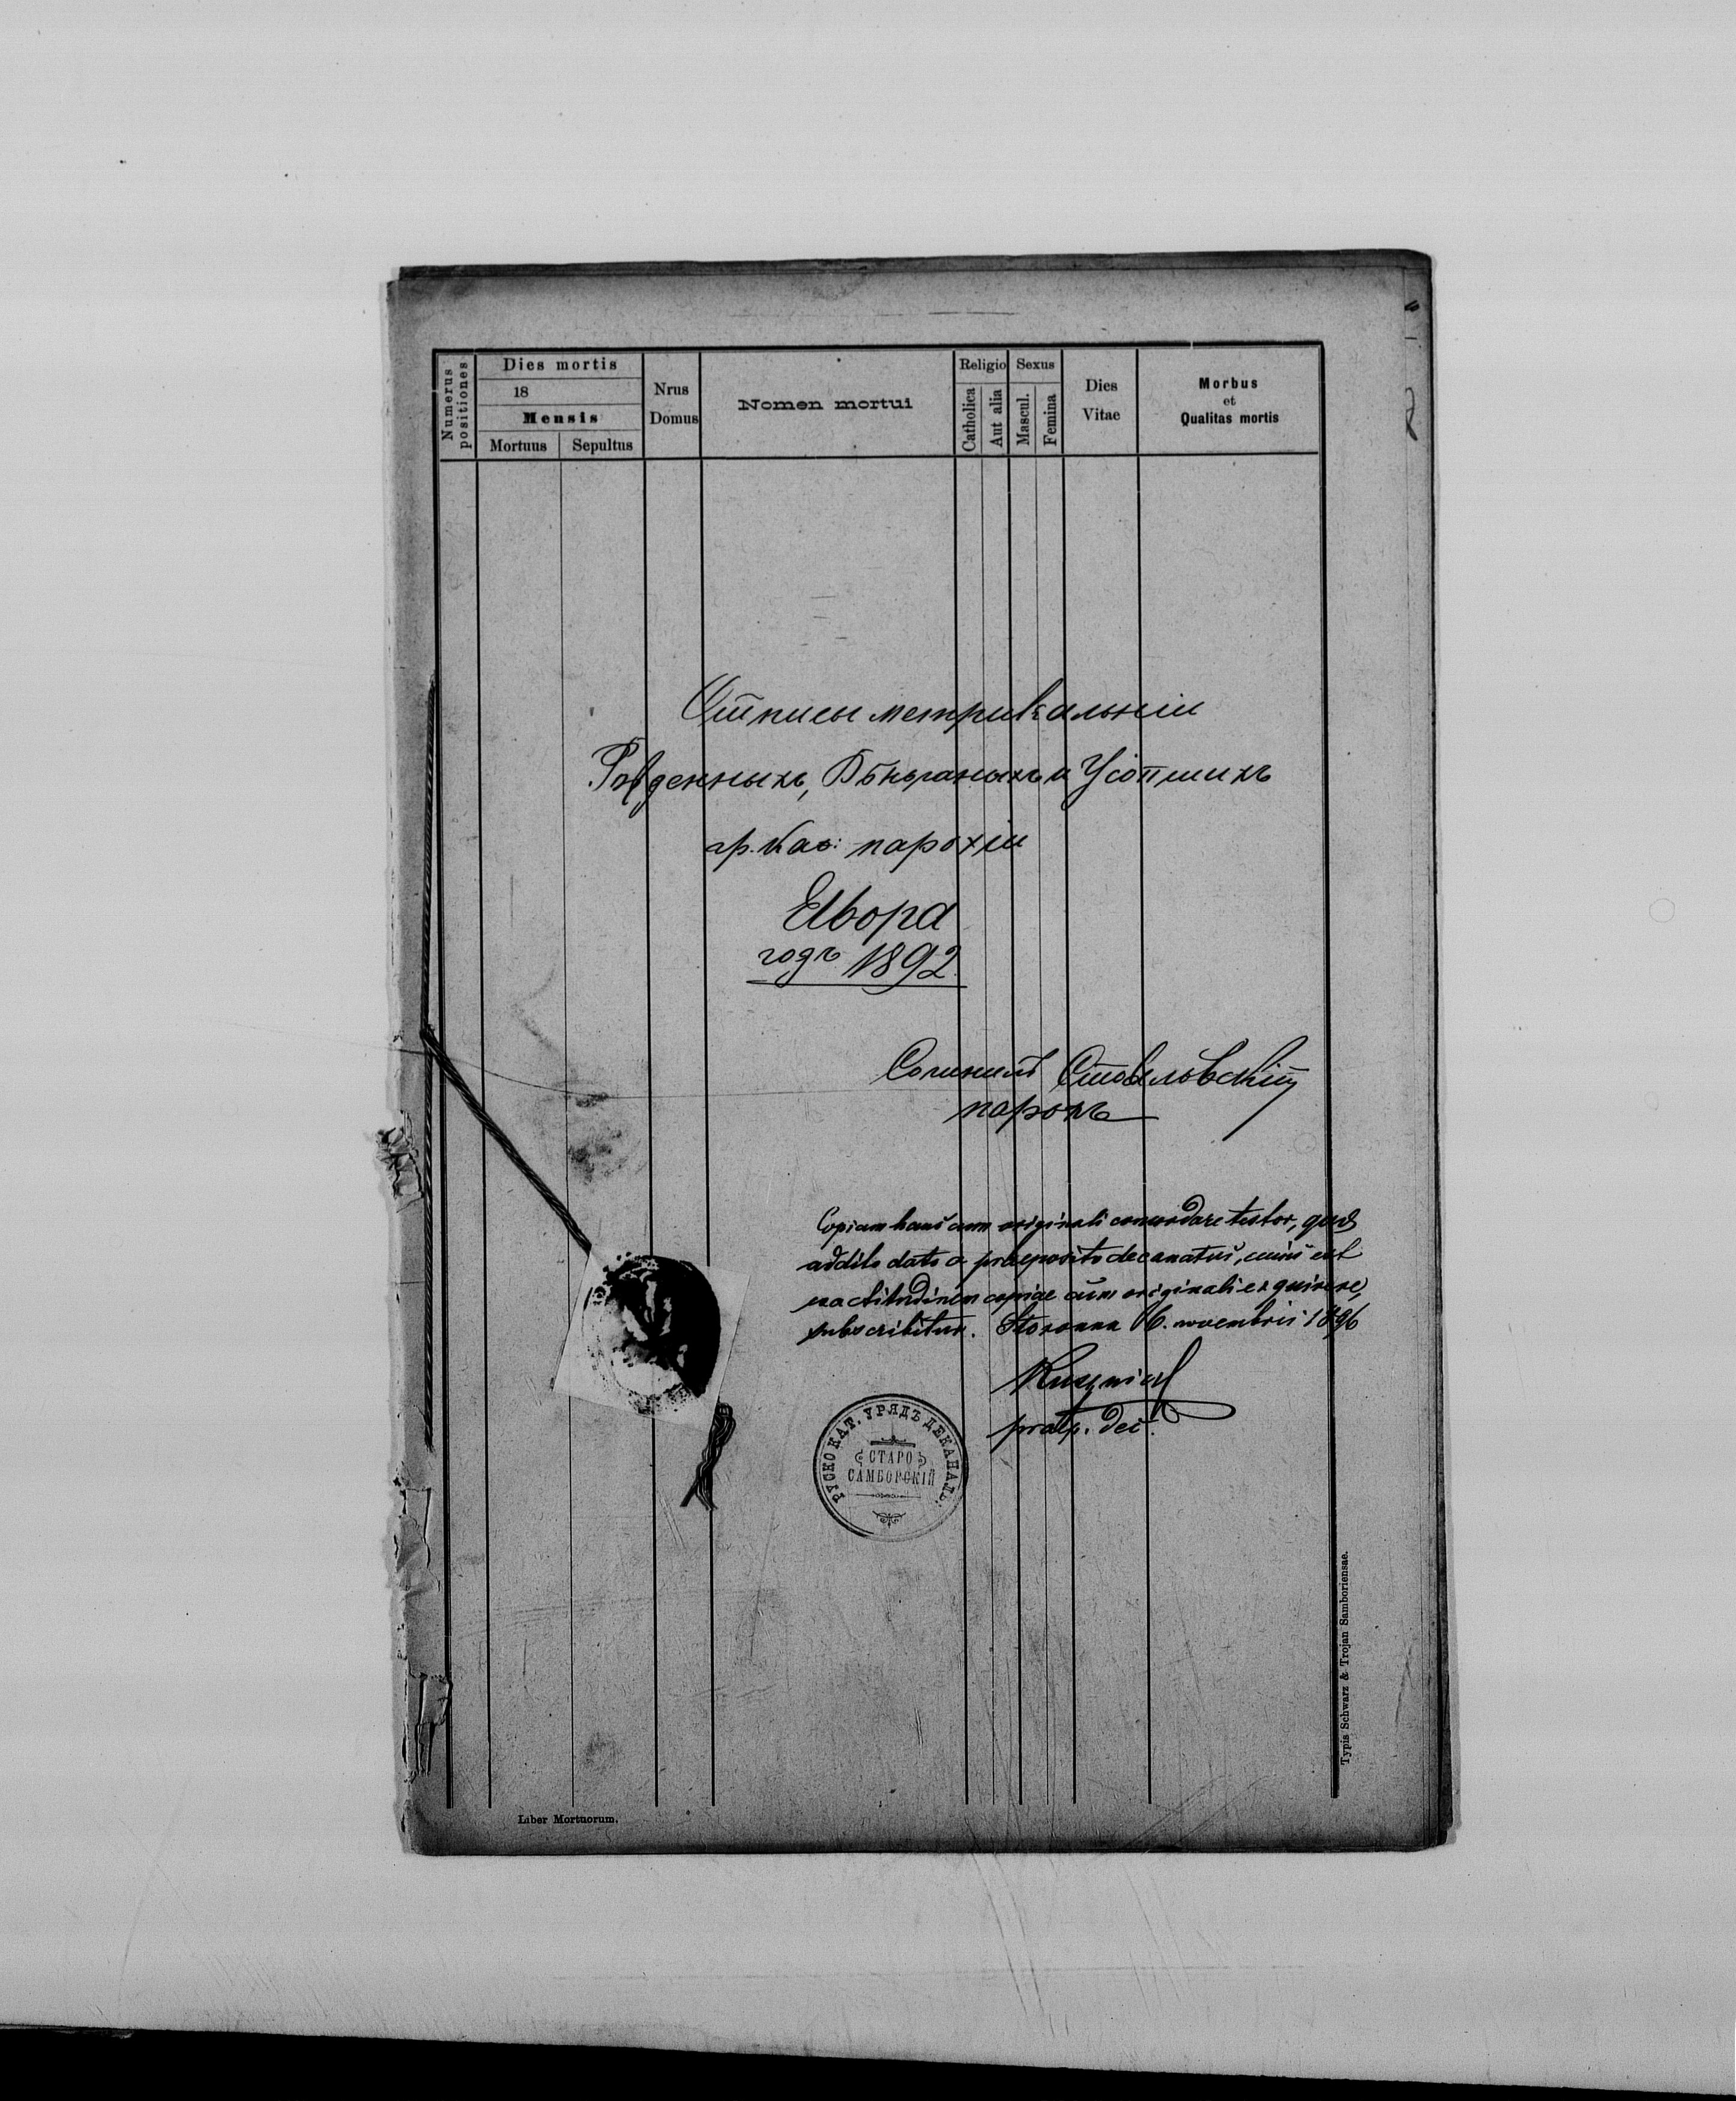 Numerus positiones
Dies mortis
18
Mensis
Mortuus Sepultus
Nrus Domus
Nomen mortui
Religio
Catholica
Aut alia
Sexus
Mascul.
Femina
Dies Vitae
Morbus
et
Qualitas mortis
Отписы метрикальніи
Рожденныхъ, Вѣнчаныхъ и Усопшихъ
гр. каѳ: парохіи
Явора
годъ 1892
парохъ
Copiam hanc cum originali concordare testor, quod
addito dato a praeposito decanatus, cuius est
exactitudinem copiae cum originali exquirere,
subscribitur. Storonna 16. novembris 1896
praep. dec.
РУСКО КАТ. УРЯДЪ ДЕКАНАЛЬ.
СТАРО
САМБОРСКІЙ
Typis Schwarz & Trojan Samboriensae.
Liber Mortuorum.